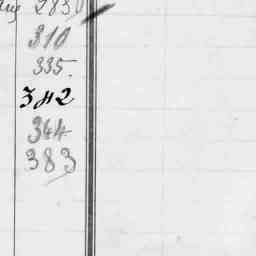 283
310
335.
342
344
383